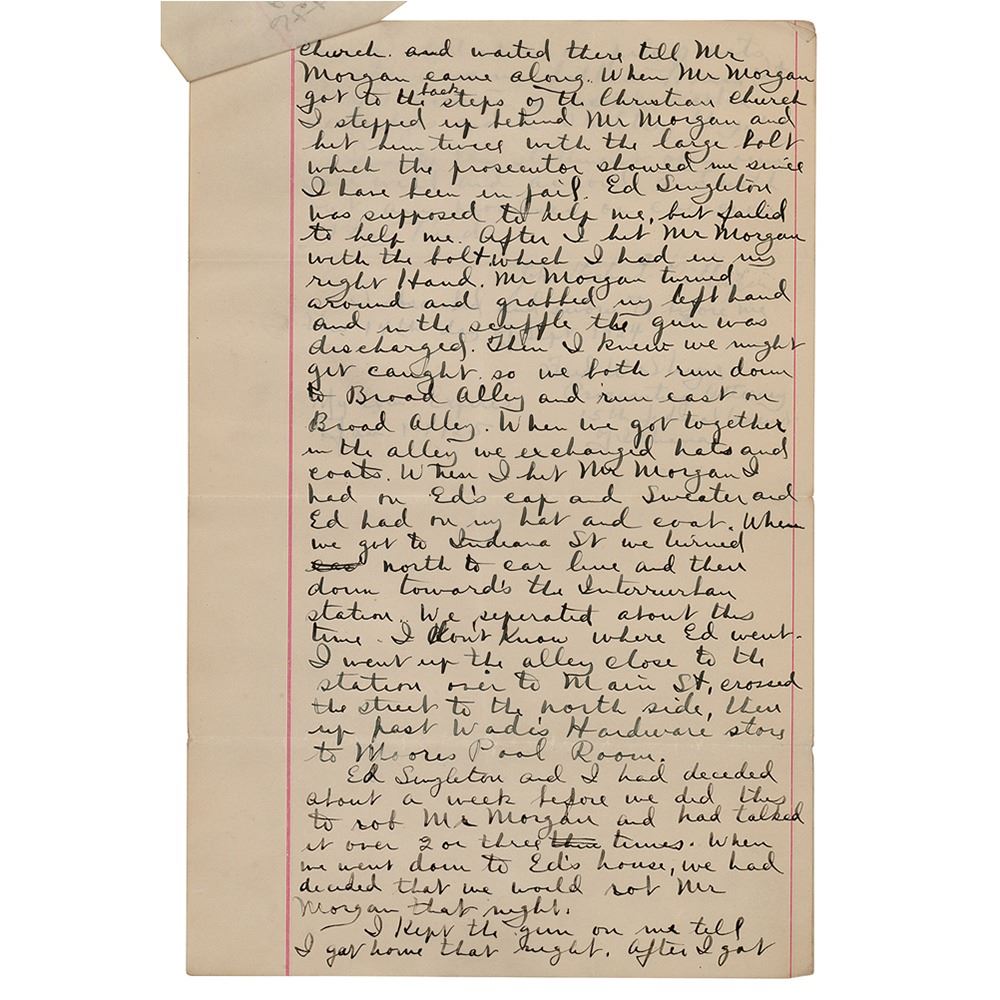 church. and waited there till Mr
Morgan came along. When Mr Morgan
got to the back steps of the Christian Church
I stepped up behind Mr Morgan and
hit him twice with the large bolt
which the prosecutor showed me since
I have been in jail. Ed Singleton
was supposed to help me, but failed
to help me. After I hit Mr Morgan
with the bolt which I had in my
right Hand. Mr Morgan turned
around and grabbed my left hand
and in the scuffle the gun was
discharged. Then I knew we might
get caught so we both run down
to Broad Alley and run east on
Broad Alley. When we got together
in the alley we exchanged hats and
coats. When I hit Mr Morgan I
had on Ed's cap and Sweater and
Ed had on my hat and coat. When
we got to Indiana St we turned
eas north to car line and then
down toward's the Interrurban
station. We seperated about this
time. I don't know where Ed went.
I went up the alley close to the
station over to Main St, crossed
the street to the north side, then
up past Wade's Hardware store
to Moores Pool Room.
Ed Singleton and I had decided
about a week before we did this
to rob Mr Morgan and had talked
it over 2 or three thre times. When
we went down to Ed's house, we had
decided that we would rob Mr
Morgan that night.
I kept the gun on me till
I got home that night. After I got